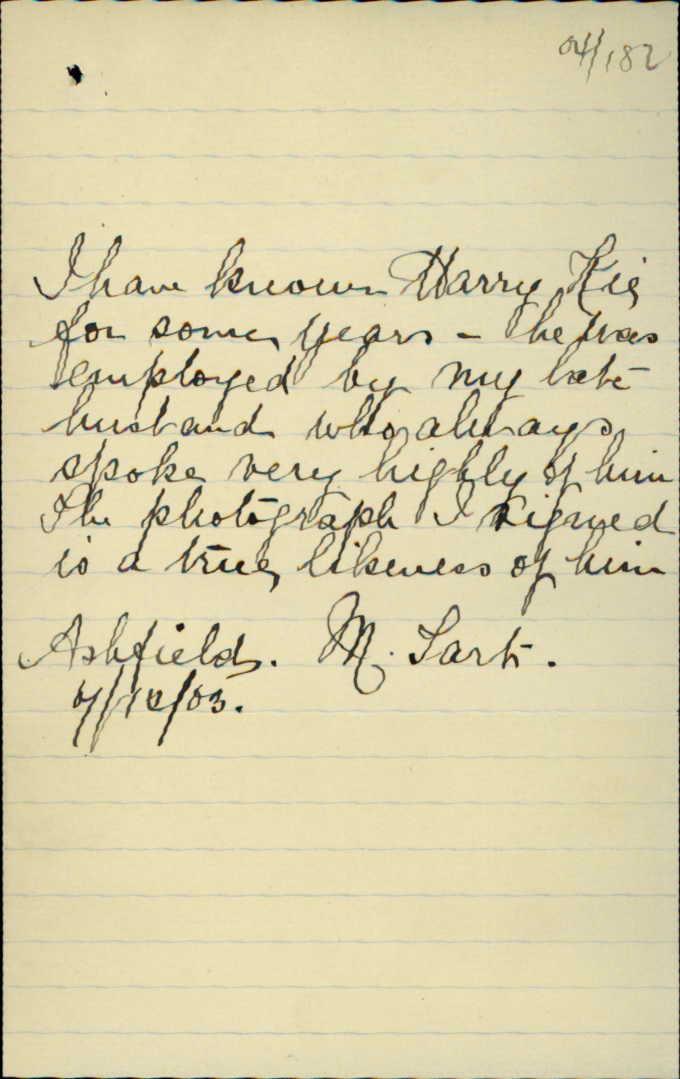 04/182
I have known Harry
for some years - he was
employed by my late
husband who always
spoke very highly of him
The photograph I signed
is a true likeness of him
Ashfield. M. Tart.